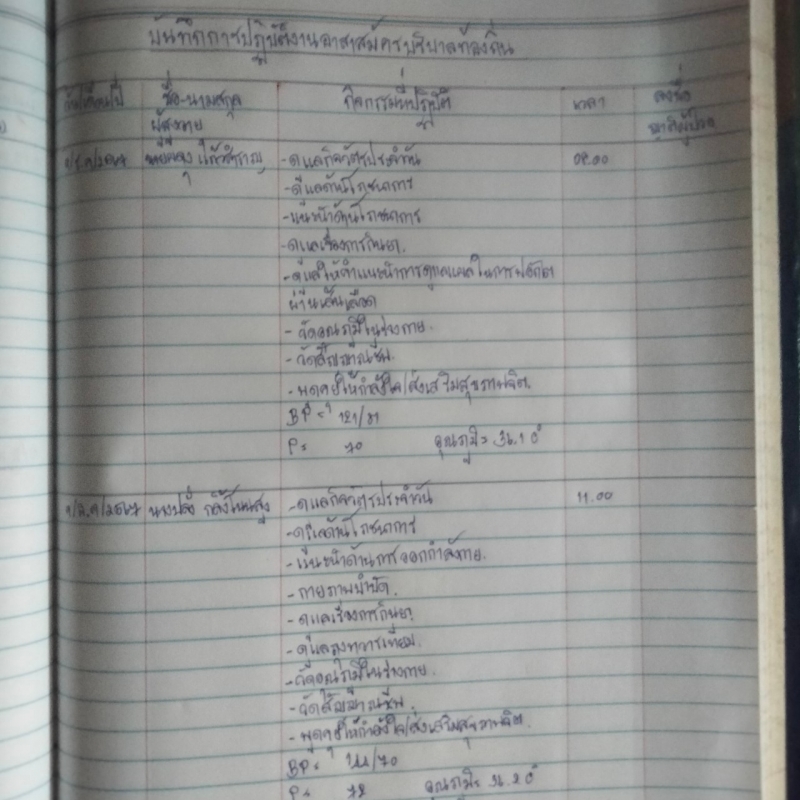 บันทึกการปฏิบัติงานอาสาสมัครบริบาลท้องถิ่น
วัน/เดือน/ปี ชื่อ-นามสกุล กิจกรรมที่ปฏิบัติ เวลา ลงชื่อ
ผู้สูงอายุ ญาติผู้ป่วย
-ดูแลกิจวัตรประจำวัน 09.00
-ดูแลด้านโภชนาการ
-แนะนำด้านโภชนาการ
-ดูแลเรื่องการกินยา.
-ดูแลให้คำแนะนำการดูแลแผลในการ
ผ่าเส้นเลือด
-วัดอุณภูมิในร่างกาย.
-วัดสัญญาณชีพ.
-พูดคุยให้กำลังใจ/ส่งเสริมสุขภาพจิต.
BP = 121/81
P = 70 อุณภูมิ = 36.1 °
-ดูแลกิจวัตรประจำวัน 11.00
-ดูแลด้านโภชนาการ
-แนะนำด้านการออกกำลังกาย.
-กายภาพบำบัด.
-ดูแลเรื่องการกินยา.
-ดูแลทวารเทียม.
-วัดอุณภูมิในร่างกาย.
-วัดสัญญาณชีพ.
-พูดคุยให้กำลังใจ/ส่งเสริมสุขภาพจิต.
BP = /70
P = 72 อุณภูมิ = 36.2 °